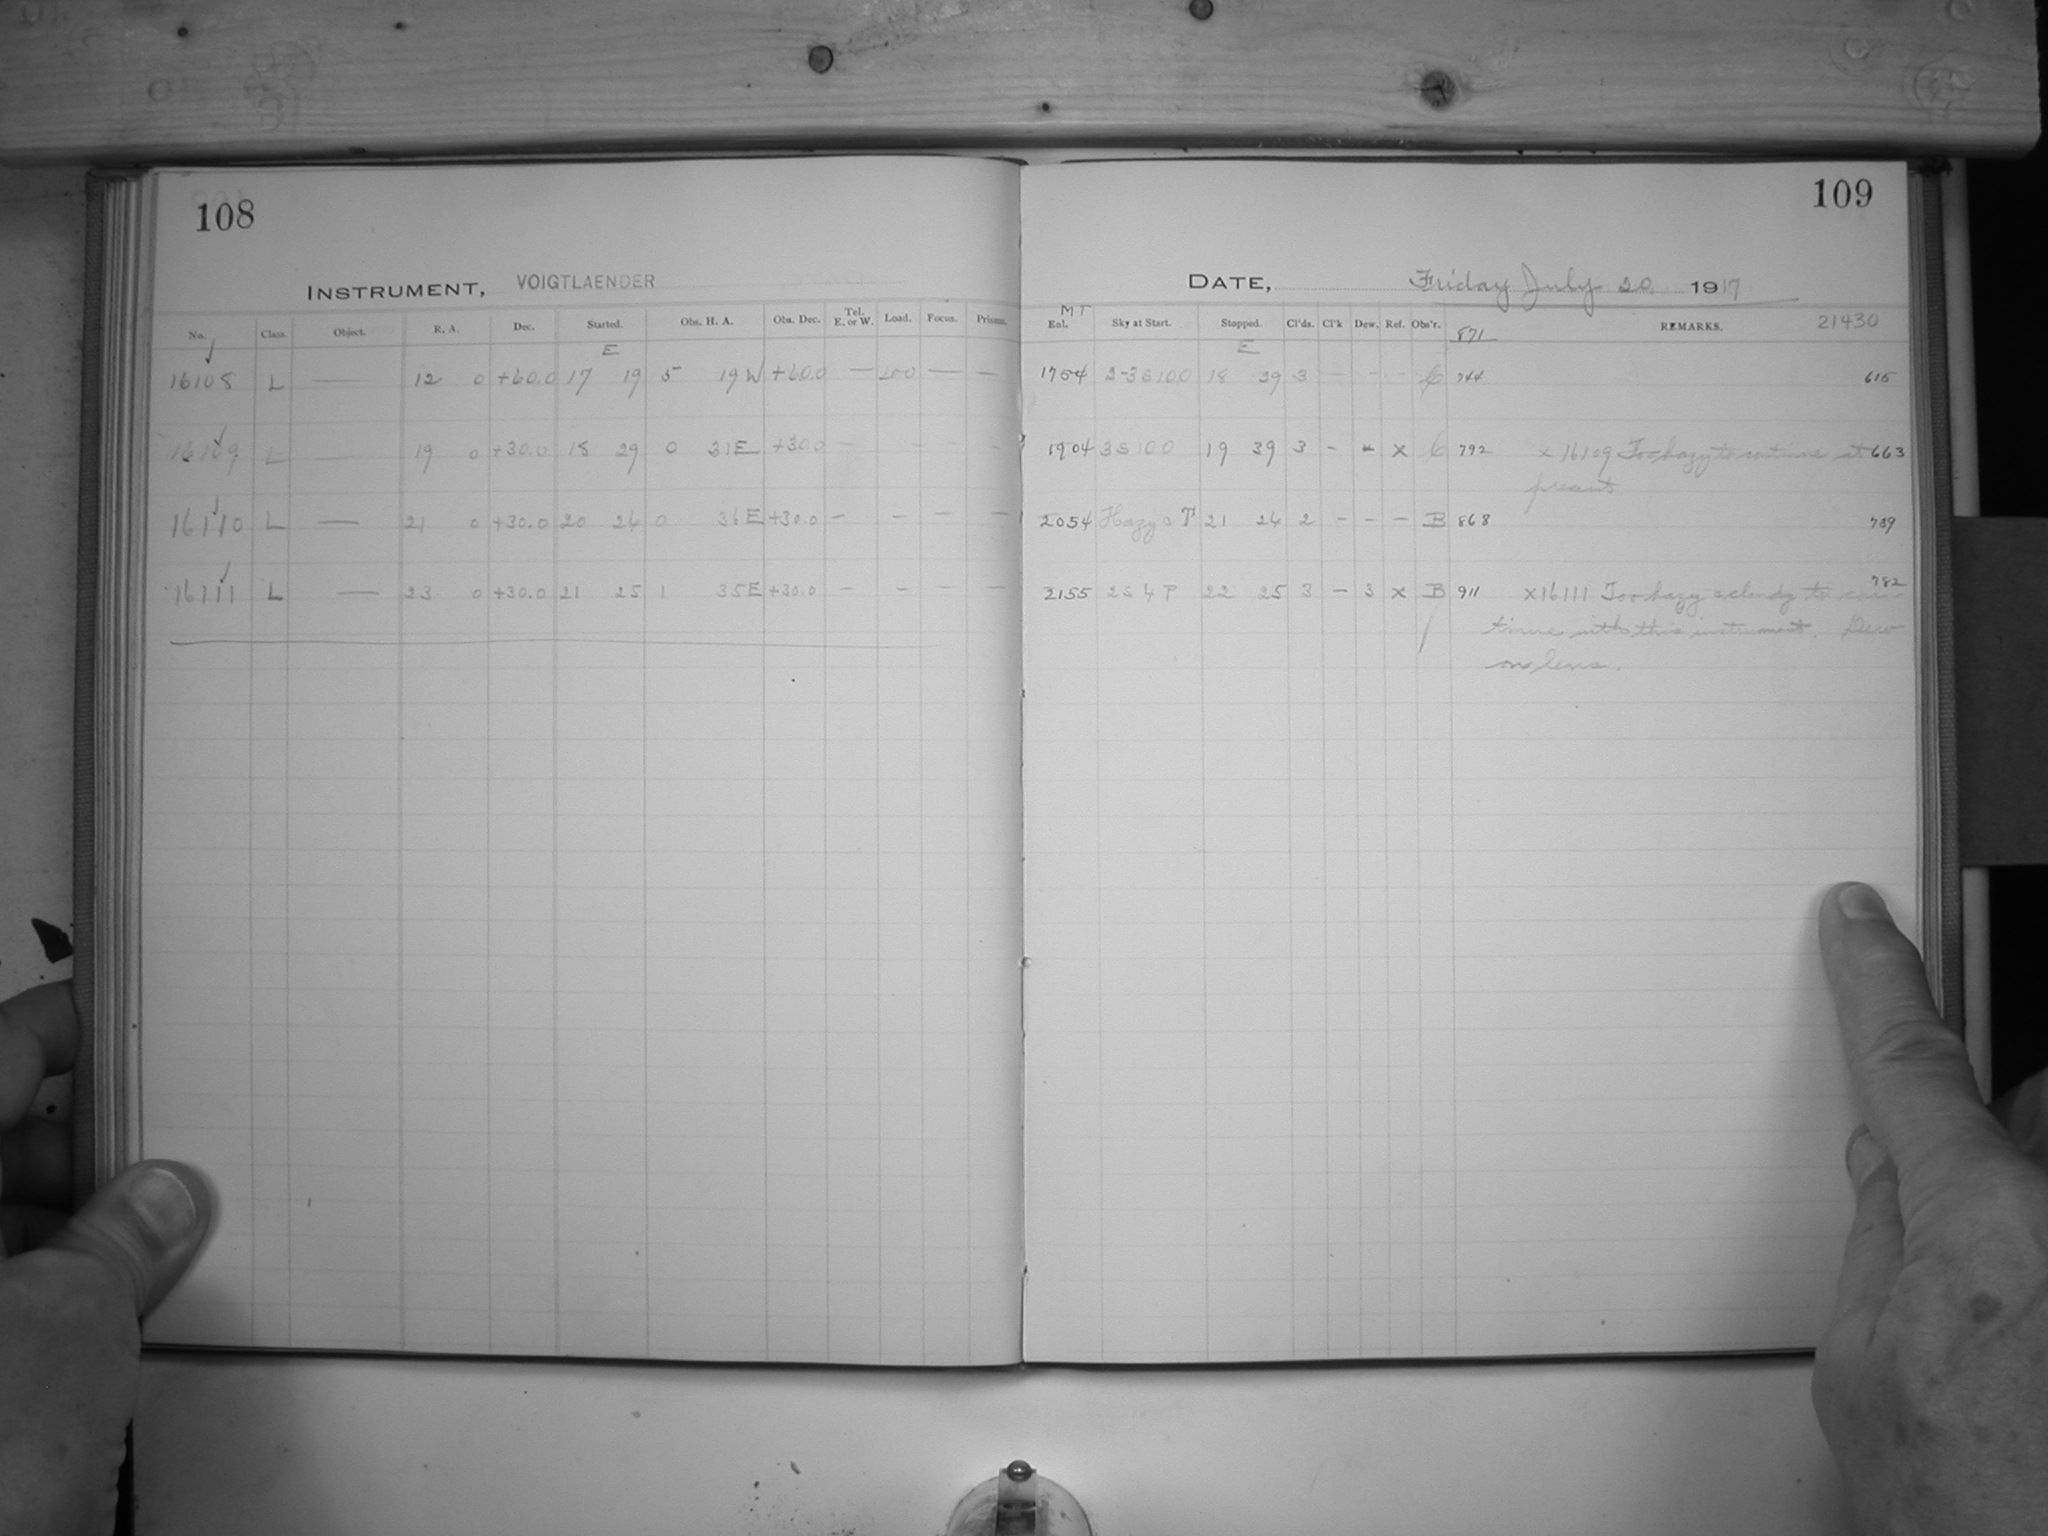 108
INSTRUMENT, VOIGTLAENDER
No. Class. Object. R. A. Dec. Started. Obs. H. A. Obs. Dec. Tel. E. or W. Load. Focus. Prisms.
E
16108 L — 12 0 +60.0 17 19 5 19 W +60.0 — 200 — —
16109 L — 19 0 +30.0 18 29 0 31 E +30.0 — -
16110 L — 21 0 +30.0 20 24 0 36 E +30.0 - - - —
16111 L — 23 0 +30.0 21 25 1 35 E +30.0 - - - —
109
DATE, Friday July 20 1917
MT
Eql. Sky at Start. Stopped. Cl'ds. Cl'k Dew. Ref. Obs'r. 871 REMARKS. 21430
E
1754 2-3S100 18 29 3 - - - C 744 615
1904 3S100 19 39 3 - - x C 792 x 16109 Too hazy to continue at 663
present
2054 Hazy T 21 24 2 - - - B 868 739
2155 2S4P 22 25 3 - 3 x B 911 x16111 Too hazy & cloudy to con- 782
tinue with this instrument. Dew
on lens.